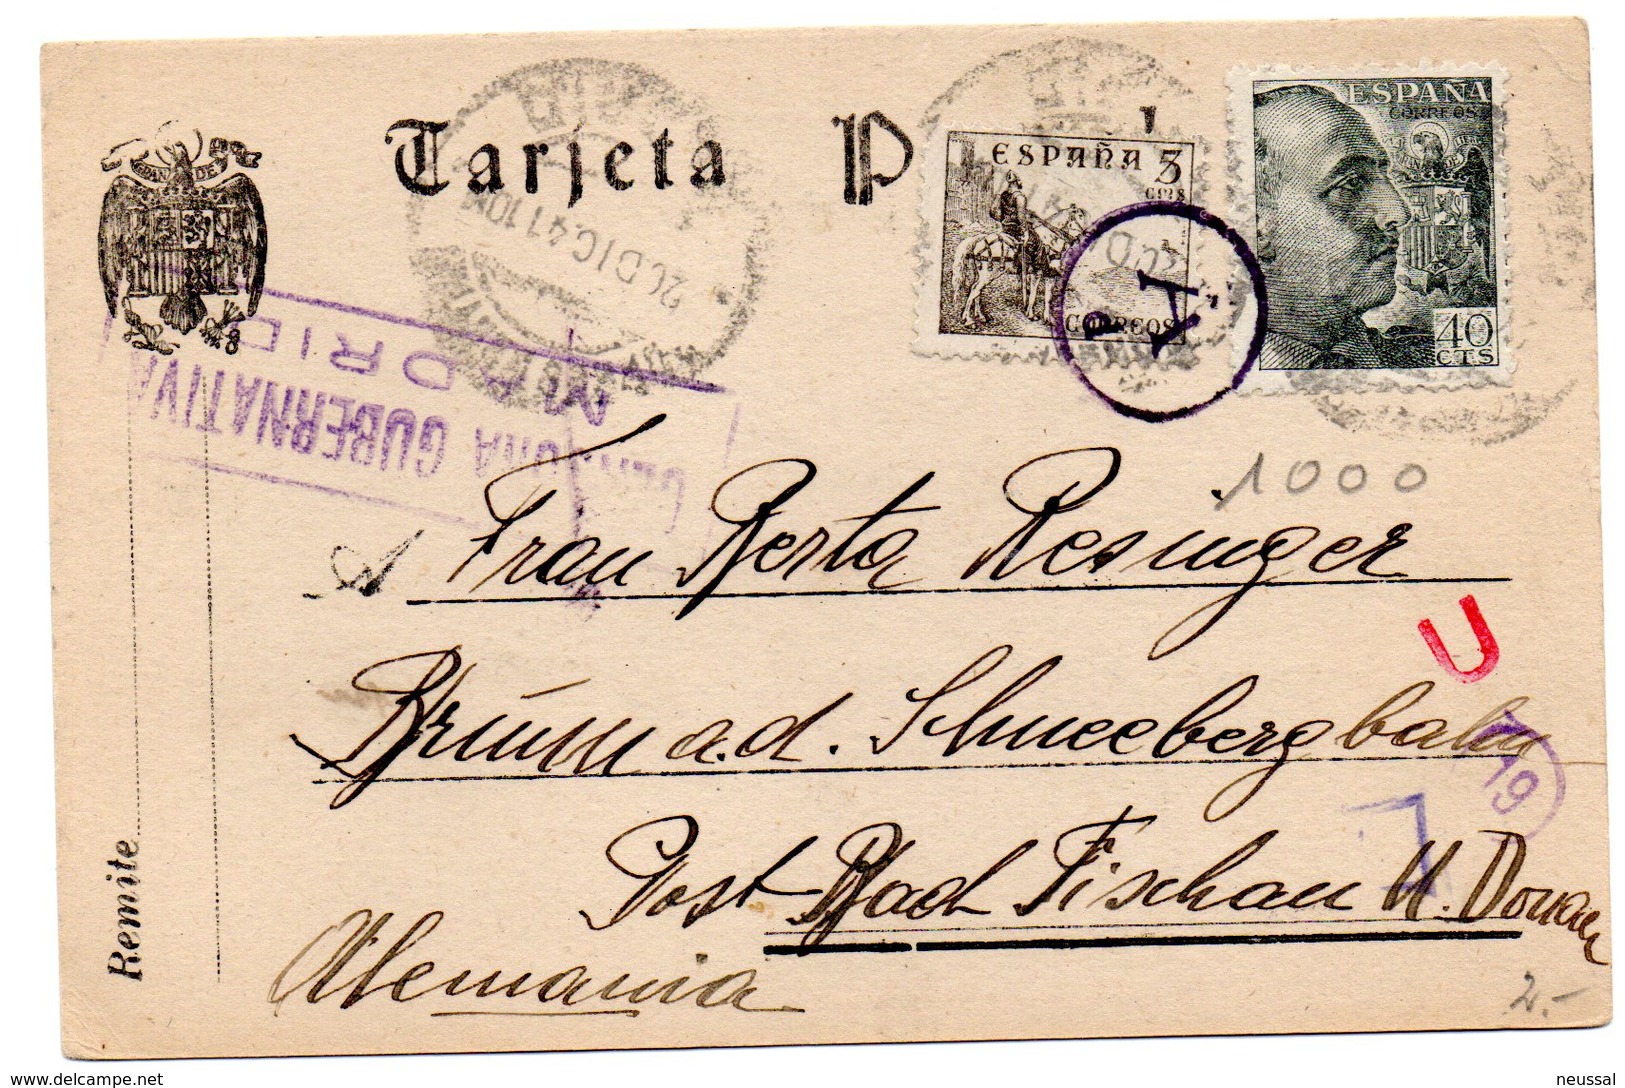 Tarjeta P
ESPAÑA 5
CTMS
CORREOS
ESPAÑA
CORREOS
40
CTS
26 DIC. 41 10M
CENSURA GUBERNATIVA
MADRID
A
1000
Frau Berta Resinger
Brunn a.d. Schneebergbahn
Post Bad Fischau N. Donau
Alemania
U
19
Remite
2.-
www.delcampe.net
neussal